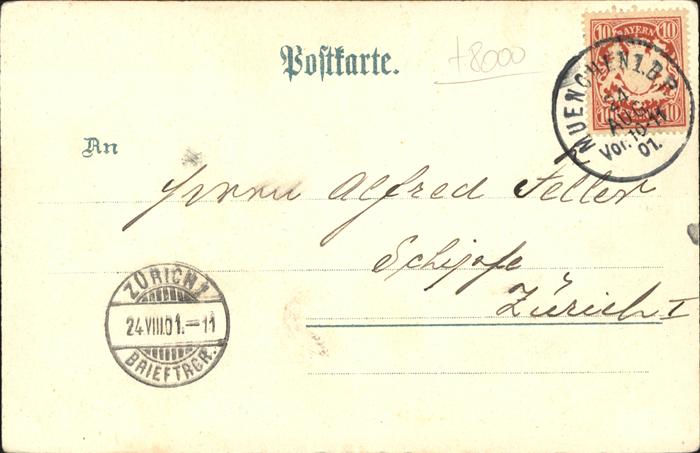 Postkarte.
+8000
10 BAYERN 10
10 10
MUENCHEN 1. B.P.
24
AUG
Vor. 10-11
01.
An
Herrn Alfred Feller
Schipfe
Zürich I
ZÜRICH 1
24.VIII.01.–11
BRIEFTRGR.